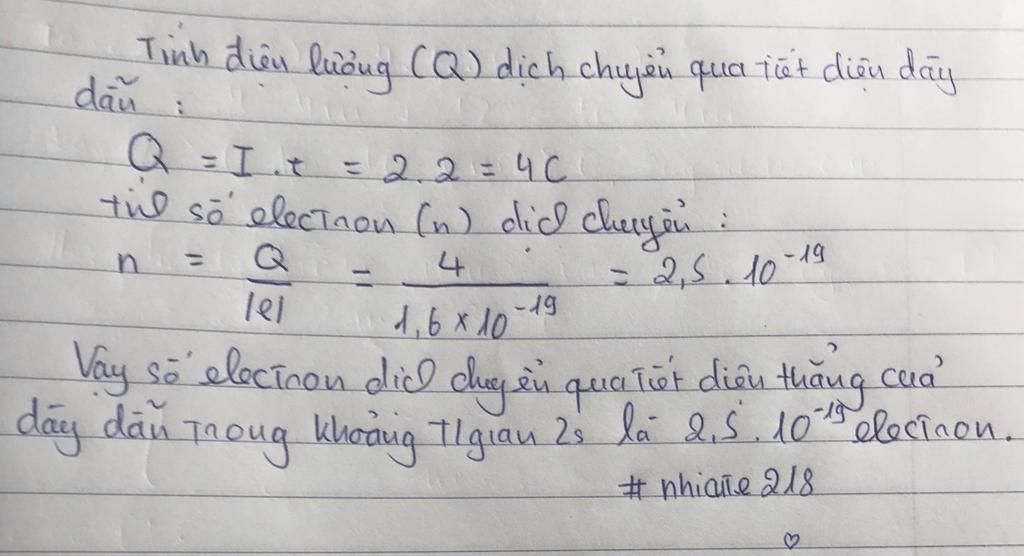 Tính điện lượng (Q) dịch chuyển qua tiết diện dây
dẫn :
Q = I.t = 2.2 = 4C
tính số electron (n) dịch chuyển :
n = Q/|e| = 4/1,6×10⁻¹⁹ = 2,5.10⁻¹⁹
Vậy số electron dịch chuyển qua tiết diện thẳng của
dây dẫn trong khoảng t/gian 2s là 2,5.10⁻¹⁹ electron.
# 218